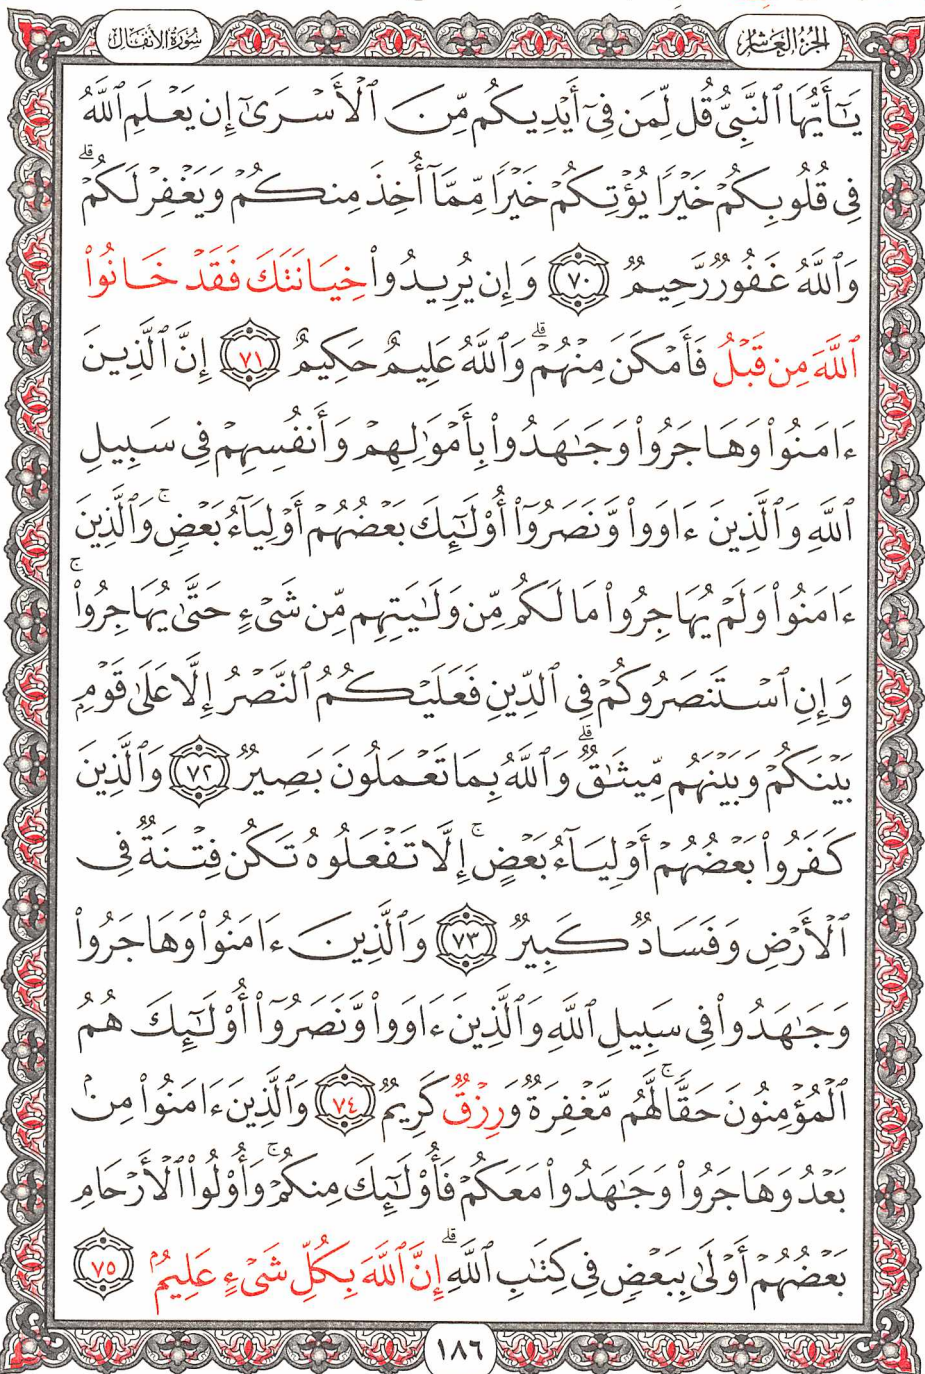 الجزء العاشر
سورة الأنفال
يَٰٓأَيُّهَا ٱلنَّبِىُّ قُل لِّمَن فِىٓ أَيْدِيكُم مِّنَ ٱلْأَسْرَىٰٓ إِن يَعْلَمِ ٱللَّهُ
فِى قُلُوبِكُمْ خَيْرًا يُؤْتِكُمْ خَيْرًا مِّمَّآ أُخِذَ مِنكُمْ وَيَغْفِرْ لَكُمْ ۗ
وَٱللَّهُ غَفُورٌ رَّحِيمٌ ٧٠ وَإِن يُرِيدُوا۟ خِيَانَتَكَ فَقَدْ خَانُوا۟
ٱللَّهَ مِن قَبْلُ فَأَمْكَنَ مِنْهُمْ ۗ وَٱللَّهُ عَلِيمٌ حَكِيمٌ ٧١ إِنَّ ٱلَّذِينَ
ءَامَنُوا۟ وَهَاجَرُوا۟ وَجَٰهَدُوا۟ بِأَمْوَٰلِهِمْ وَأَنفُسِهِمْ فِى سَبِيلِ
ٱللَّهِ وَٱلَّذِينَ ءَاوَوا۟ وَّنَصَرُوٓا۟ أُو۟لَٰٓئِكَ بَعْضُهُمْ أَوْلِيَآءُ بَعْضٍ ۚ وَٱلَّذِينَ
ءَامَنُوا۟ وَلَمْ يُهَاجِرُوا۟ مَا لَكُم مِّن وَلَٰيَتِهِم مِّن شَىْءٍ حَتَّىٰ يُهَاجِرُوا۟ ۚ
وَإِنِ ٱسْتَنصَرُوكُمْ فِى ٱلدِّينِ فَعَلَيْكُمُ ٱلنَّصْرُ إِلَّا عَلَىٰ قَوْمٍۭ
بَيْنَكُمْ وَبَيْنَهُم مِّيثَٰقٌ ۗ وَٱللَّهُ بِمَا تَعْمَلُونَ بَصِيرٌ ٧٢ وَٱلَّذِينَ
كَفَرُوا۟ بَعْضُهُمْ أَوْلِيَآءُ بَعْضٍ ۚ إِلَّا تَفْعَلُوهُ تَكُن فِتْنَةٌ فِى
ٱلْأَرْضِ وَفَسَادٌ كَبِيرٌ ٧٣ وَٱلَّذِينَ ءَامَنُوا۟ وَهَاجَرُوا۟
وَجَٰهَدُوا۟ فِى سَبِيلِ ٱللَّهِ وَٱلَّذِينَ ءَاوَوا۟ وَّنَصَرُوٓا۟ أُو۟لَٰٓئِكَ هُمُ
ٱلْمُؤْمِنُونَ حَقًّا ۚ لَّهُم مَّغْفِرَةٌ وَرِزْقٌ كَرِيمٌ ٧٤ وَٱلَّذِينَ ءَامَنُوا۟ مِنۢ
بَعْدُ وَهَاجَرُوا۟ وَجَٰهَدُوا۟ مَعَكُمْ فَأُو۟لَٰٓئِكَ مِنكُمْ ۚ وَأُو۟لُوا۟ ٱلْأَرْحَامِ
بَعْضُهُمْ أَوْلَىٰ بِبَعْضٍ فِى كِتَٰبِ ٱللَّهِ ۗ إِنَّ ٱللَّهَ بِكُلِّ شَىْءٍ عَلِيمٌۢ ٧٥
١٨٦